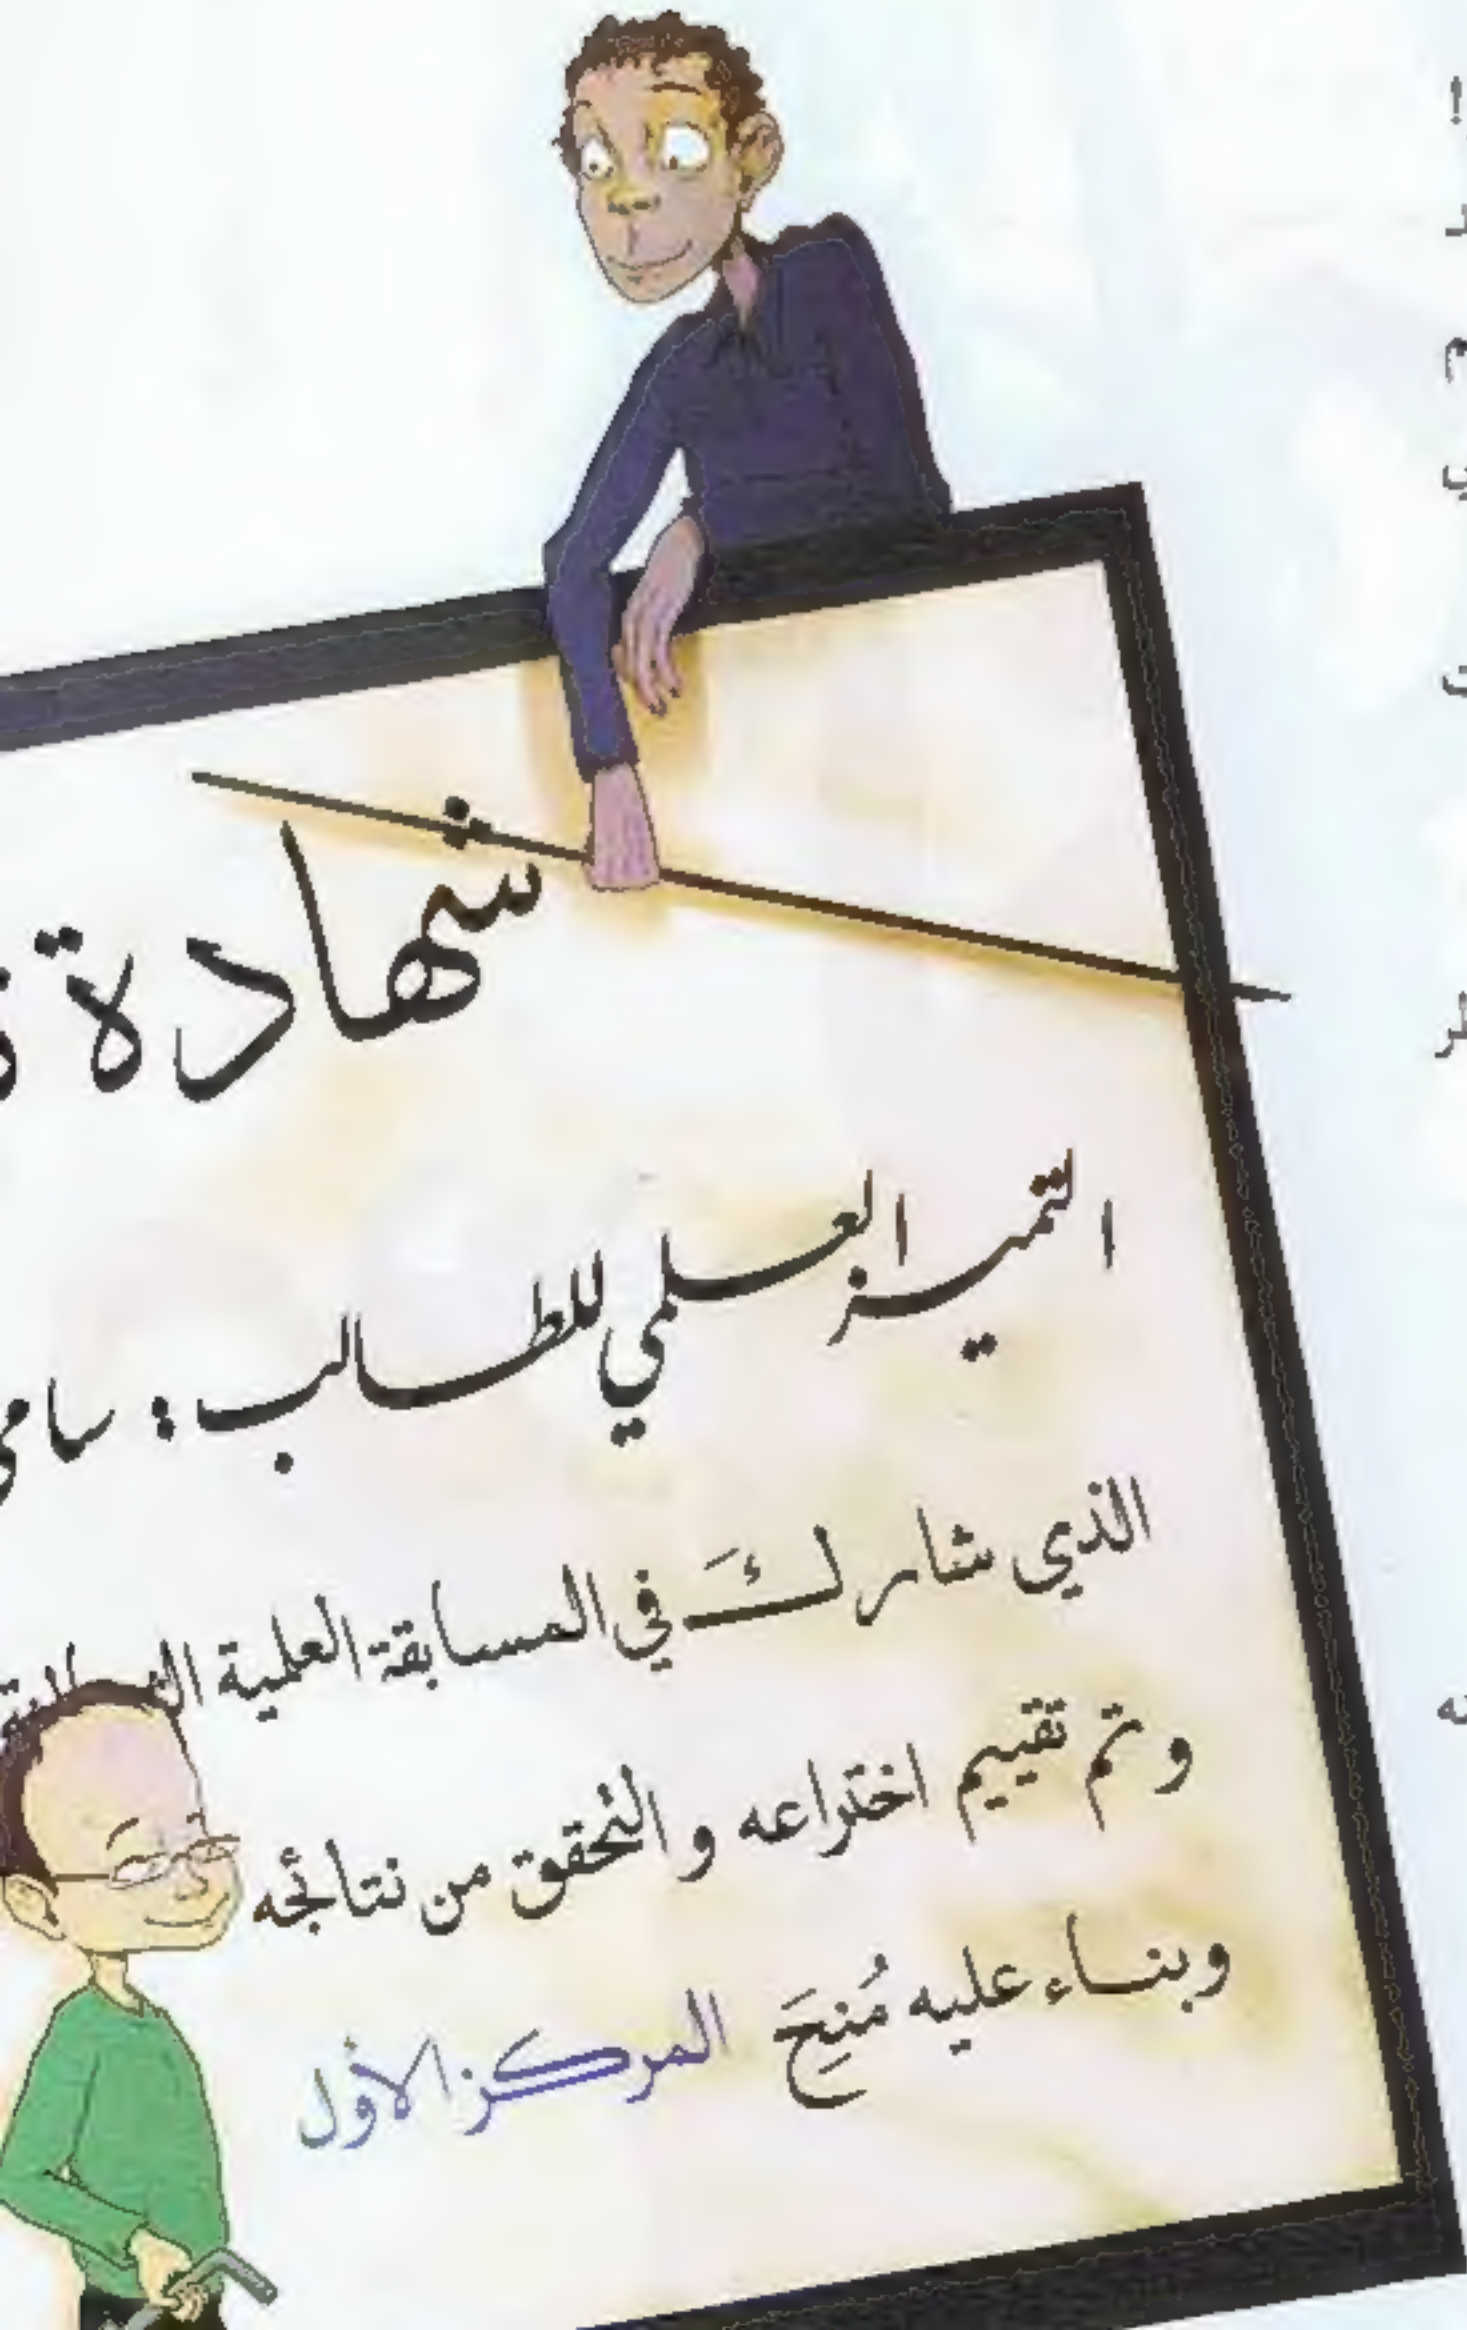 شهادة
التميز العلمي للطالب : سامي
الذي شارك في المسابقة العلمية
وتم تقييم اختراعه والتحقق من نتائجه
وبناء عليه مُنِحَ المركز الأول